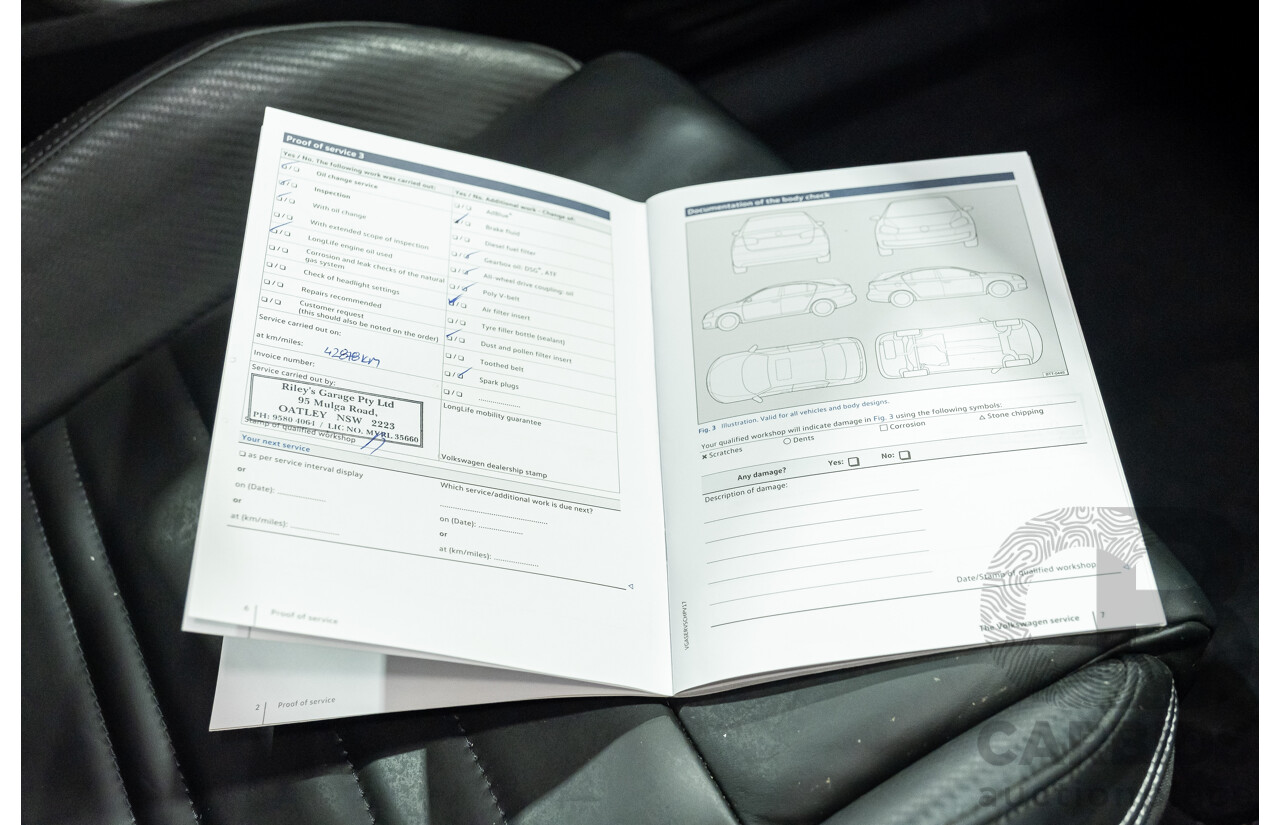 Proof of service 3
Yes / No. The following work was carried out:
❑ / ❑ Oil change service
❑ / ❑ Inspection
❑ / ❑ With oil change
❑ / ❑ With extended scope of inspection
❑ / ❑ LongLife engine oil used
❑ / ❑ Corrosion and leak checks of the natural
gas system
❑ / ❑ Check of headlight settings
❑ / ❑ Repairs recommended
❑ / ❑ Customer request
(this should also be noted on the order)
Service carried out on:
at km/miles:
Invoice number:
Service carried out by:
Riley's Garage Pty Ltd
95 Mulga Road,
OATLEY NSW 2223
PH: 9580 4064 / LIC NO. MVRL 35660
Stamp of qualified workshop
Yes / No. Additional work - Change of:
❑ / ❑ AdBlue®
❑ / ❑ Brake fluid
❑ / ❑ Diesel fuel filter
❑ / ❑ Gearbox oil: DSG®, ATF
❑ / ❑ All-wheel drive coupling: oil
❑ / ❑ Poly V-belt
❑ / ❑ Air filter insert
❑ / ❑ Tyre filler bottle (sealant)
❑ / ❑ Dust and pollen filter insert
❑ / ❑ Toothed belt
❑ / ❑ Spark plugs
❑ / ❑ ....................
LongLife mobility guarantee
Volkswagen dealership stamp
Your next service
❑ as per service interval display
or
on (Date):
or
at (km/miles):
Which service/additional work is due next?
on (Date):
or
at (km/miles):
6 Proof of service
2 Proof of service
Documentation of the body check
Fig. 3 Illustration. Valid for all vehicles and body designs.
Your qualified workshop will indicate damage in Fig. 3 using the following symbols:
✖ Scratches ○ Dents □ Corrosion △ Stone chipping
Any damage? Yes: ❑ No: ❑
Description of damage:
Date/Stamp of qualified workshop
The Volkswagen service 7